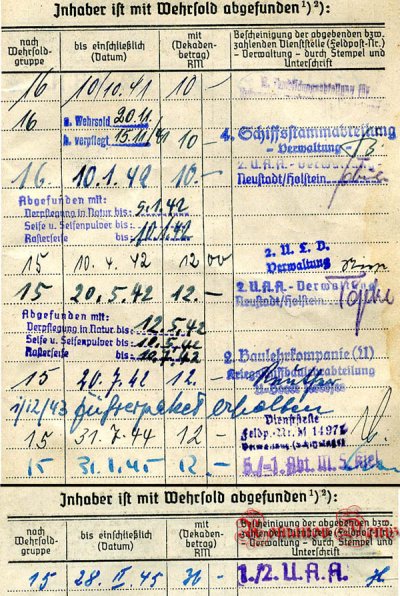 Inhaber ist mit Wehrsold abgefunden¹) ²):
nach Wehrsold-gruppe
bis einschließlich (Datum)
mit (Dekaden-betrag) RM
Bescheinigung der abgebenden bzw. zahlenden Dienststelle (Feldpost-Nr.) - Verwaltung - durch Stempel und Unterschrift
16 10/10.41 10 -
16 a. Wehrsold 20.11.
b. verpflegt 15.11/41 10 - 4. Schiffsstammabteilung
- Verwaltung -
16. 10.1.42 10.- 2. U.A.A. - Verwaltung
Neustadt/Holstein
Abgefunden mit:
Verpflegung in Natur bis: 9.1.42
Seife u. Seifenpulver bis: 10.1.42
Rasierseife
15 10.4.42 12 00 2. U.L.D.
Verwaltung
15 20.5.42 12.- 2. U.A.A. - Verwaltung
Neustadt/Holstein
Abgefunden mit:
Verpflegung in Natur bis: 12.5.42
Seife u. Seifenpulver bis: 10.5.42
Rasierseife 10.7.42
2. Baulehrkompanie (U)
15 20.7.42 12.- Kriegsschiffbaulehrabteilung
1/12/43 Führerpaket erhalten
Dienststelle
15 31.7.44 10 - Feldp.-Nr. M 14972
15 31.1.45 12.-
Inhaber ist mit Wehrsold abgefunden¹) ²):
nach Wehrsold-gruppe
bis einschließlich (Datum)
mit (Dekaden-betrag) RM
Bescheinigung der abgebenden bzw. zahlenden Dienststelle (Feldpost-Nr.) - Verwaltung - durch Stempel und Unterschrift
15 28. II. 45 1./2. U.A.A.